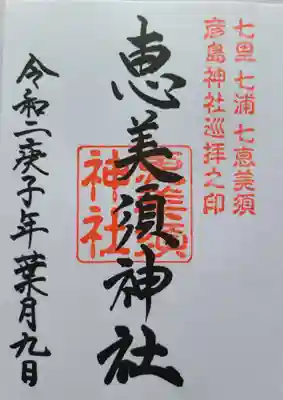 七里七浦七恵美須
彦島神社巡拝之印
恵美須神社
恵美須
神社
令和二庚子年葉月九日